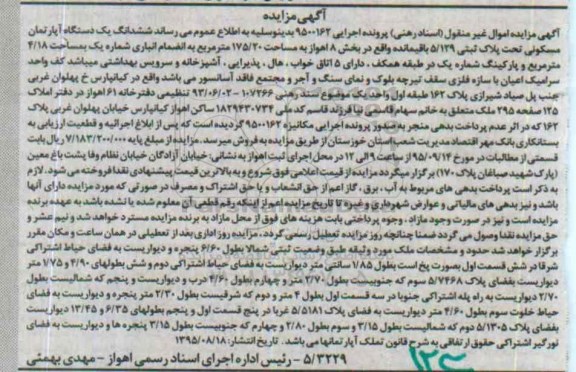 آگهی مزایده
آگهی مزایده اموال غیر منقول (اسناد رهنی) پرونده اجرایی ۹۵۰۰۱۶۲ بدینوسیله به اطلاع عموم می رساند ششدانگ یک دستگاه آپارتمان
مسکونی تحت پلاک ثبتی ۵/۱۲۹ باقیمانده واقع در بخش ۸ اهواز به مساحت ۱۷۵/۲۰ مترمربع به انضمام انباری شماره یک بمساحت ۴/۱۸
مترمربع و پارکینگ شماره یک در طبقه همکف . دارای ۵ اتاق خواب . هال . پذیرایی . آشپزخانه و سرویس بهداشتی میباشد کف واحد
سرامیک اعیان با سازه فلزی سقف تیرچه بلوک و نمای سنگ و آجر و مجتمع فاقد آسانسور می باشد واقع در کیانپارس خ پهلوان غربی
جنب پل صیاد شیرازی پلاک ۱۶۲ طبقه اول واحد یک موضوع سند رهنی ۱۰۷۳۶۶ - ۹۳/۰۶/۰۲ تنظیمی دفترخانه ۶۱ اهواز در دفتر املاک
۱۲۵ صفحه ۲۹۵ ملک متعلق به خانم سهام قاسمی نیا فرزند قاسم کد ملی ۱۸۲۹۴۳۰۷۳۴ ساکن اهواز کیانپارس خیابان پهلوان غربی پلاک
۱۶۲ که در اثر عدم پرداخت بدهی منجر به صدور پرونده اجرایی مکانیزه ۹۵۰۰۱۶۲ گردیده است که پس از ابلاغ اجرائیه و قطعیت ارزیابی به
بستانکاری بانک مهر اقتصاد مدیریت شعب استان خوزستان از طریق مزایده به فروش میرسد . مزایده از مبلغ پایه ۷/۱۸۳/۲۰۰/۰۰۰ ریال بابت
قسمتی از مطالبات در مورخ ۹۵/۰۹/۱۴ از ساعت ۹ الی ۱۲ در محل اجرای ثبت اهواز به نشانی : خیابان آزادگان خیابان نظام وفا پشت باغ معین
(پارک شهید صیباغان پلاک ۱۷۰) برگزار میگردد مزایده از قیمت اعلامی فوق شروع و به بالاترین قیمت پیشنهادی نقدا فروخته می شود . لازم
به ذکر است پرداخت بدهی های مربوط به آب ، برق ، گاز اعم از حق انشعاب و یا حق اشتراک و مصرف در صورتی که مورد مزایده دارای آنها
باشد و نیز بدهی های مالیاتی و عوارض شهرداری و غیره تا تاریخ مزایده اعم از اینکه رقم قطعی آن معلوم شده یا نشده باشد به عهده برنده
مزایده است و نیز در صورت وجود مازاد ، وجوه پرداختی بابت هزینه های فوق از محل مازاد به برنده مزایده مسترد خواهد شد و نیم عشر و
حق مزایده نقدا وصول می گردد ضمنا چنانچه روز مزایده تعطیل رسمی گردد ، مزایده روز اداری بعد از تعطیلی در همان ساعت و مکان مقرر
برگزار خواهد شد حدود و مشخصات ملک مورد وثیقه طبق وضعیت ثبتی شمالا بطول ۶/۶۰ پنجره و دیواریست به فضای حیاط اشتراکی
شرقا در شش قسمت اول بصورت پخ است بطول ۱/۸۵ سانتی متر دیواریست به فضای حیاط اشتراکی دوم و شش بطولهای ۴/۹۰ و ۱/۷۵ متر
دیواریست بفضای پلاک ۵/۷۴۶۸ سوم که جنوبیست بطول ۲/۷۰ متر و چهارم بطول ۴/۶۰ درب و دیواریست و پنجم که شمالیست بطول
۲/۷۰ دیواریست به راه پله اشتراکی جنوبا در سه قسمت اول بطول ۴ متر و دوم که شرقیست بطول ۲/۳۰ متر پنجره و دیواریست به فضای
حیاط خلوت سوم بطول ۴/۶۰ متر دیواریست به فضای پلاک ۵/۵۱۸۱ غربا در پنج قسمت اول و پنجم بطولهای ۶/۳۵ و ۱۳/۴۵ دیواریست
بفضای پلاک ۵/۱۳۰۵ دوم که شمالیست بطول ۳/۱۵ و سوم بطول ۲/۸۰ و چهارم که جنوبیست بطول ۳/۱۵ پنجره ها و دیواریست به فضای
نورگیر اشتراکی حقوق ارتفاقی به شرح قانون تملک آپارتمانها می باشد . تاریخ انتشار : ۱۳۹۵/۰۸/۱۸
۵/۳۲۲۹ - رئیس اداره اجرای اسناد رسمی اهواز - مهدی بهمئی